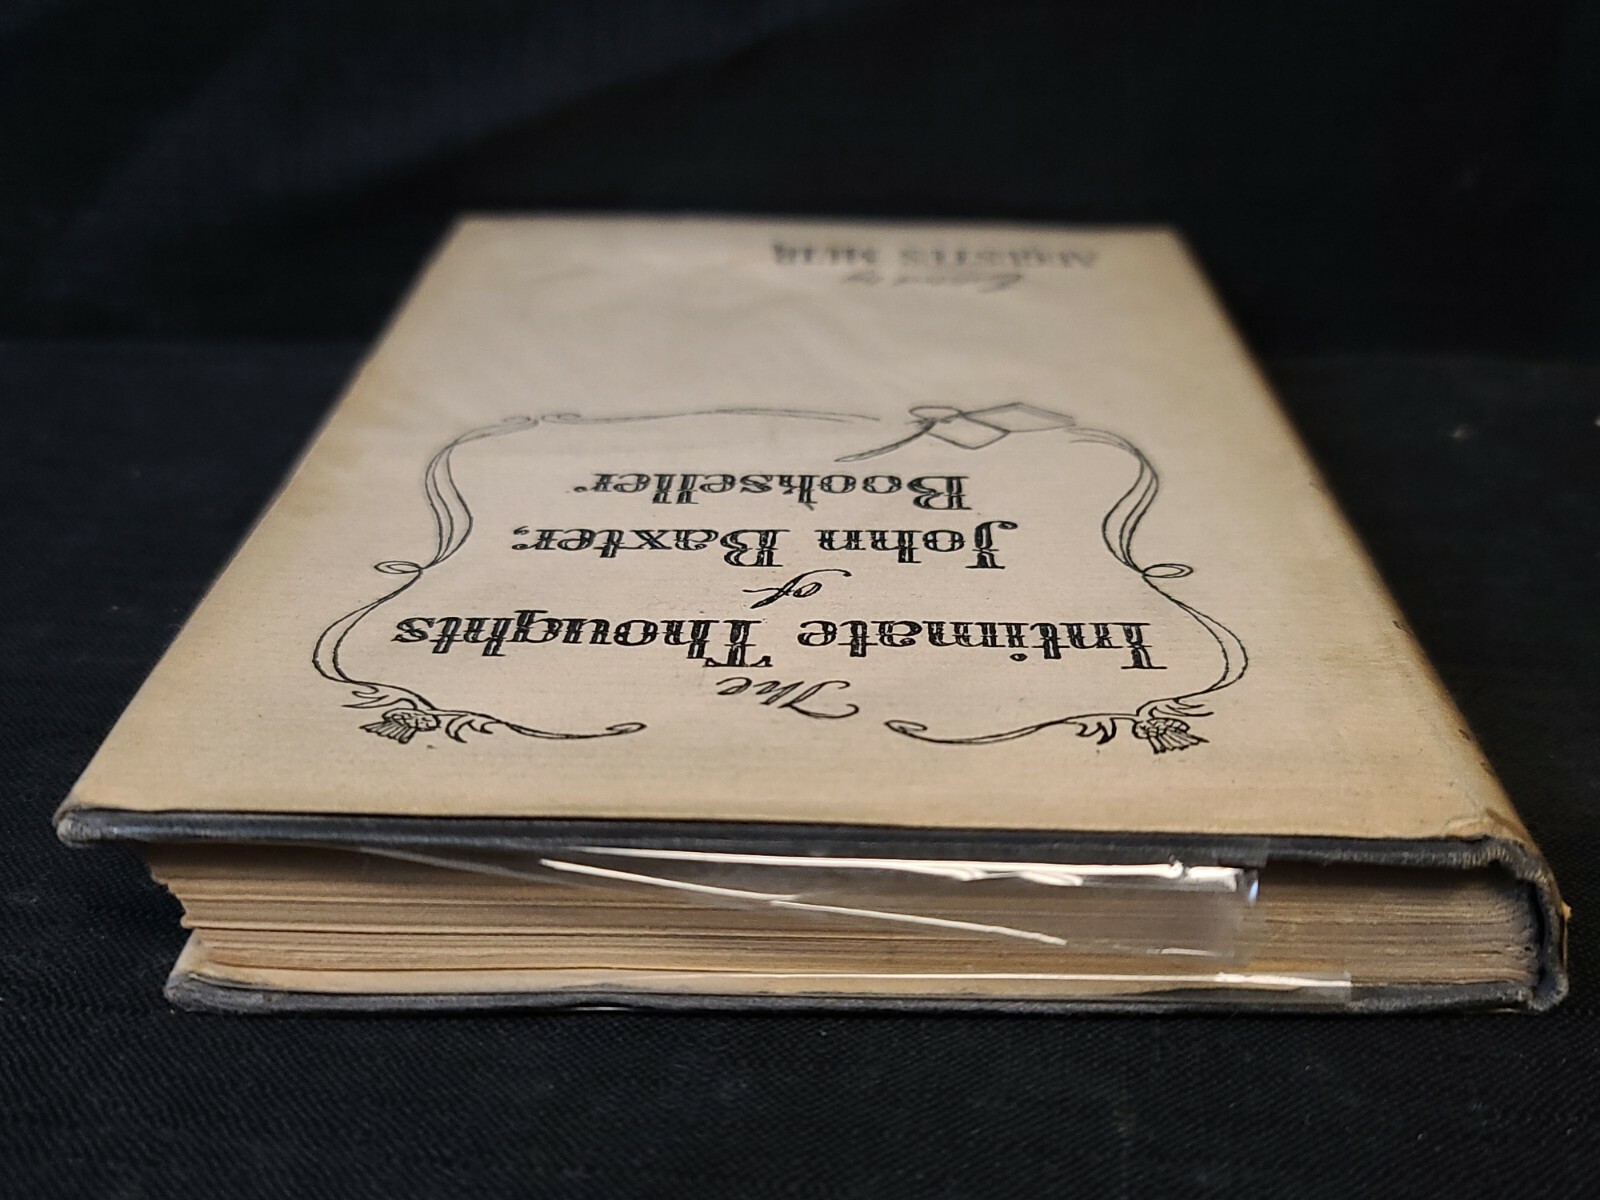 The
Intimate Thoughts
of
John Baxter,
Bookseller
Edited by
AUGUSTUS MUIR